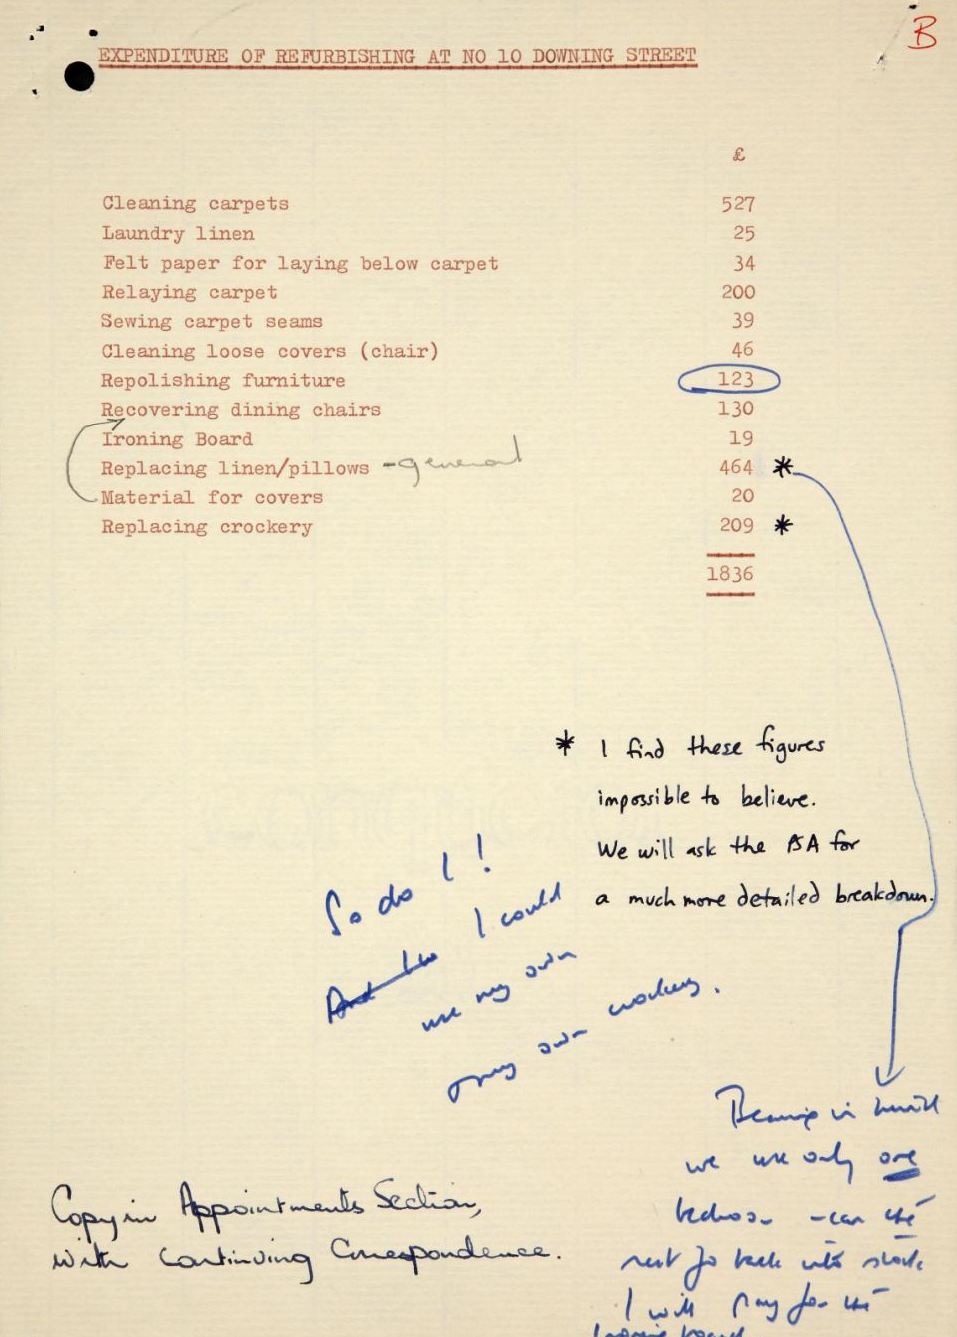 B
EXPENDITURE OF REFURBISHING AT NO 10 DOWNING STREET
£
Cleaning carpets 527
Laundry linen 25
Felt paper for laying below carpet 34
Relaying carpet 200
Sewing carpet seams 39
Cleaning loose covers (chair) 46
Repolishing furniture 123
Recovering dining chairs 130
Ironing Board 19
Replacing linen/pillows - general 464 *
Material for covers 20
Replacing crockery 209 *
1836
* I find these figures
impossible to believe.
We will ask the PSA for
a much more detailed breakdown.
So do I!
I could
use my own
my own crockery.
Bearing in mind
we use only one
bedroom - can the
rest go back into stock
I will pay for the
ironing board
Copy in Appointments Section,
with Continuing Correspondence.